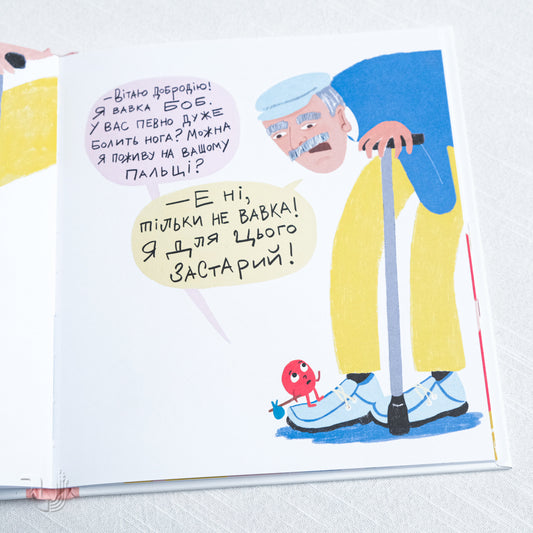 — Вітаю добродію!
Я вавка Боб.
У вас певно дуже
болить нога? Можна
я поживу на вашому
пальці?
— Е ні,
тільки не вавка!
Я для цього
застарий!